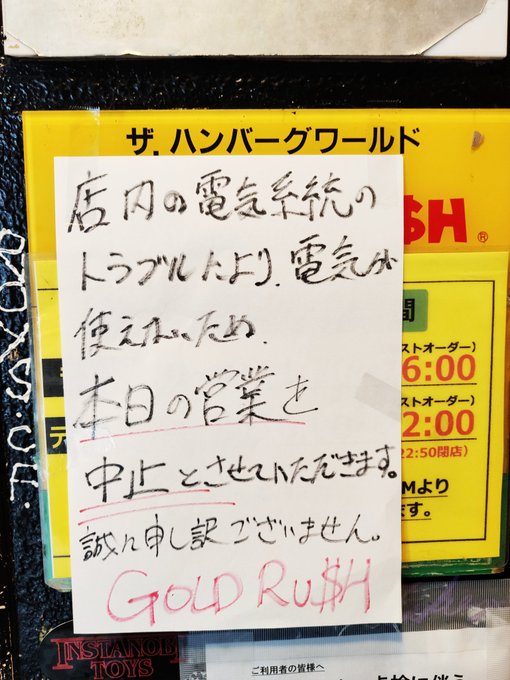 ザ.ハンバーグワールド
$H®
店内の電気系統の
トラブルにより、電気が
使えないため、
本日の営業を
中止とさせていただきます。
誠に申し訳ございません。
GOLD RU$H
間
ストオーダー)
6:00
ストオーダー)
2:00
22:50閉店)
Mより
ます。
INSTANOBI
TOYS
ご利用者の皆様へ
点検に伴う